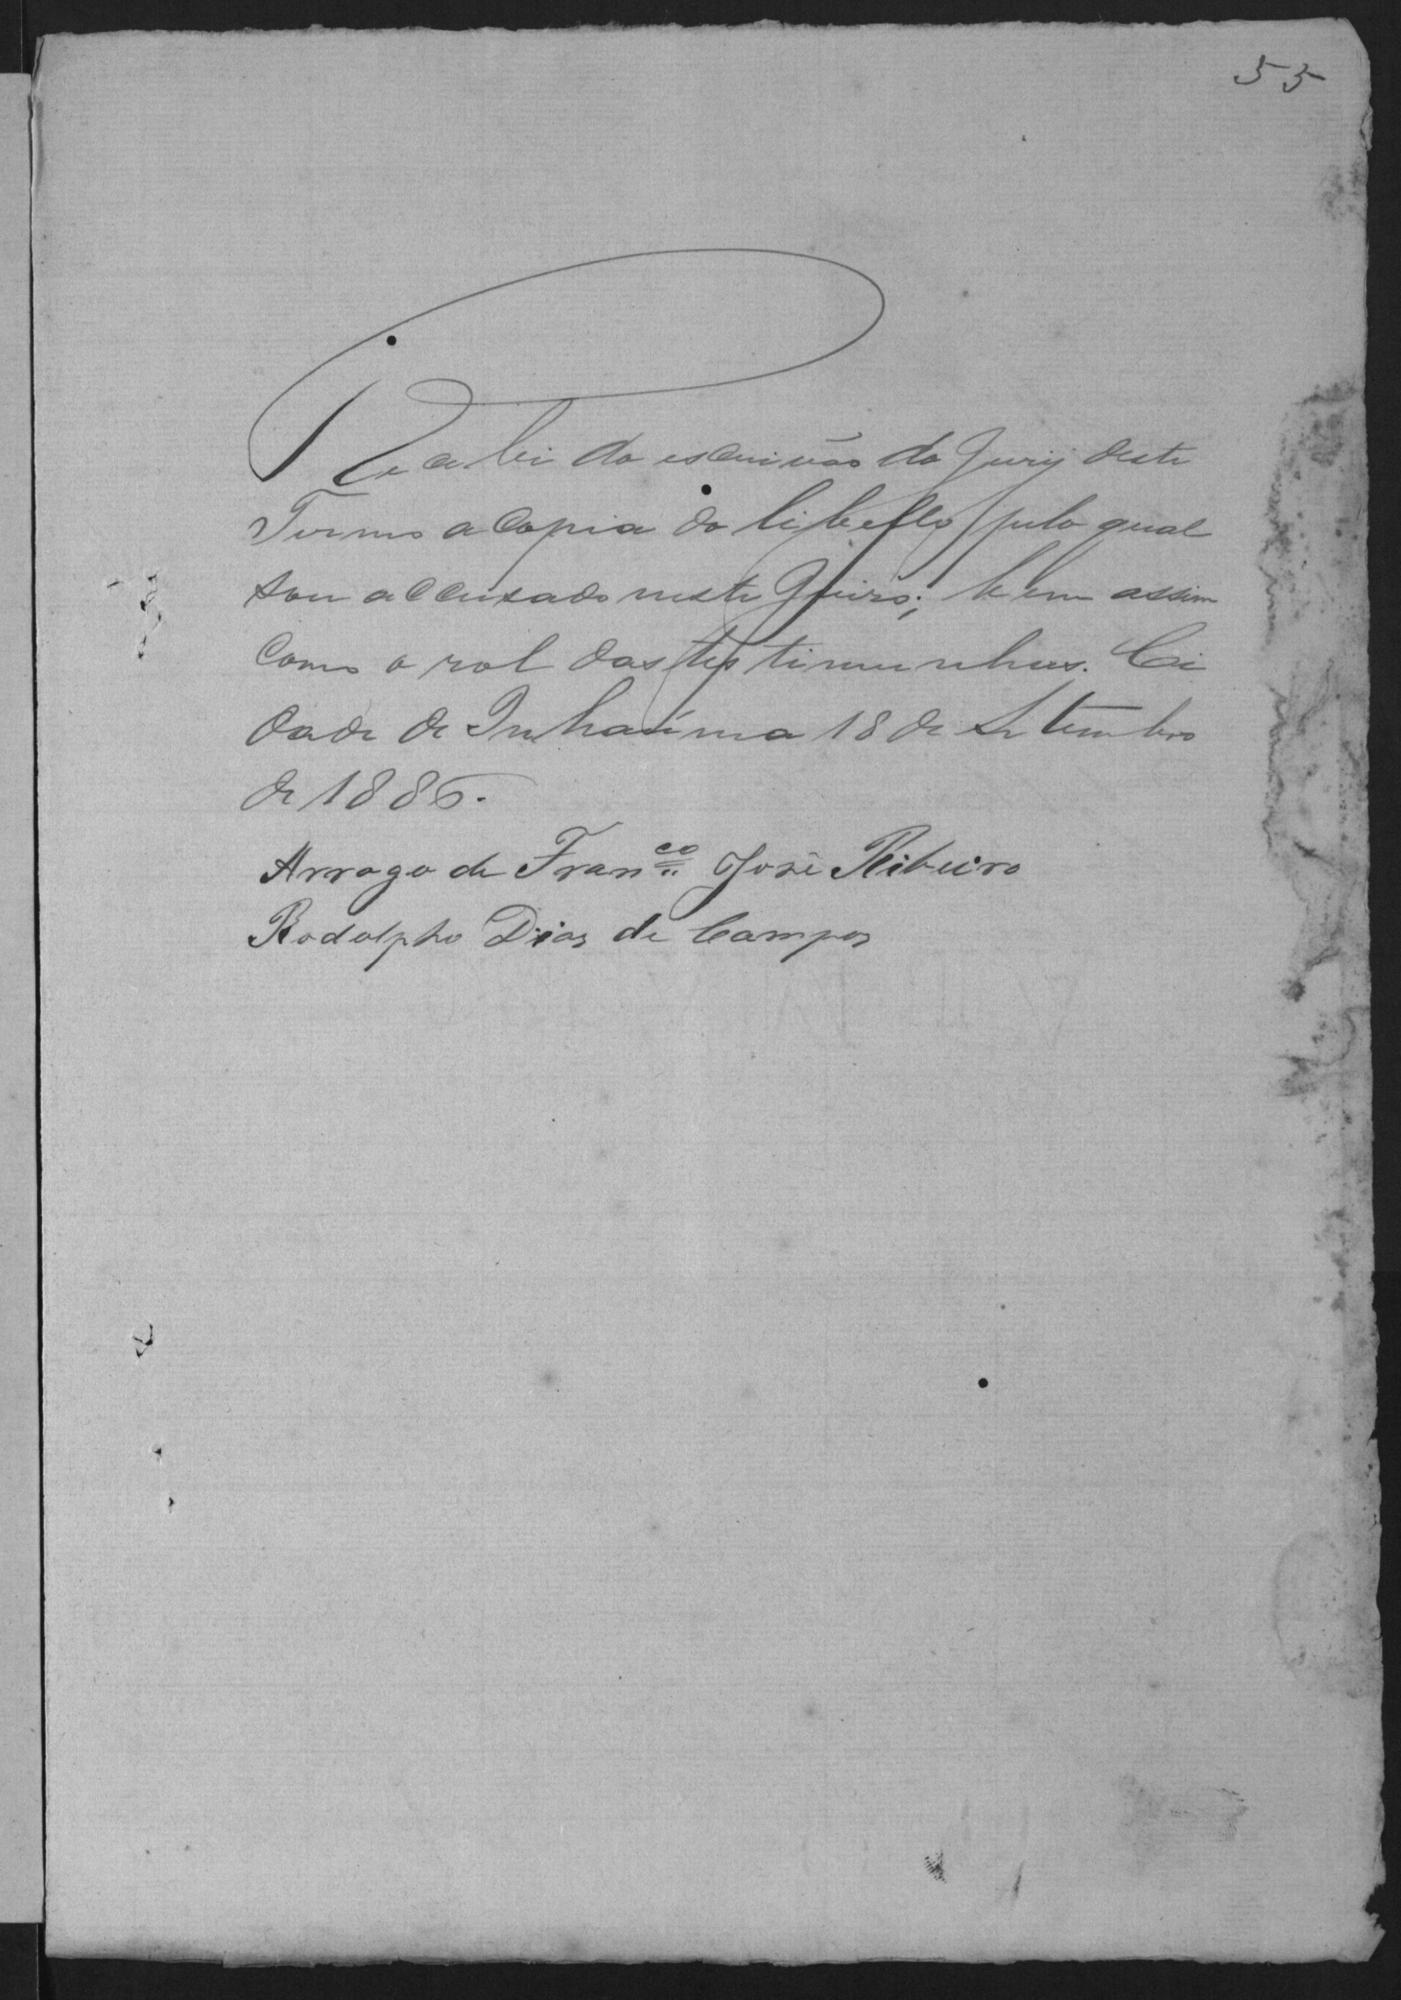 55
Recebi do escrivão do Jury deste
Termo a Copia do libello pelo qual
sou accusado neste Juiso; bem assim
Como o rol das testimunhas. Ci
dade de Inhaúma 18 de Setembro
de 1886.
Arrogo de Fran.co José Ribeiro
Rodolpho Dias de Campos